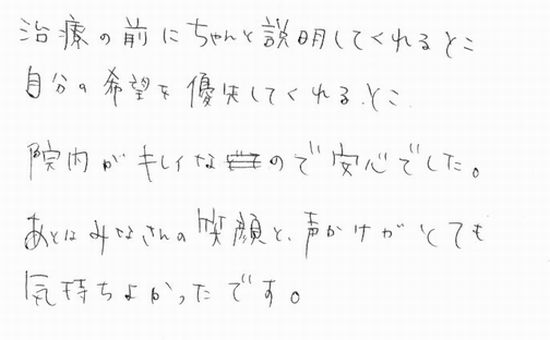 治療の前にちゃんと説明してくれるとこ
自分の希望を優先してくれるとこ
院内がキレイなので安心でした。
あとはみなさんの笑顔と、声かけがとても
気持ちよかったです。